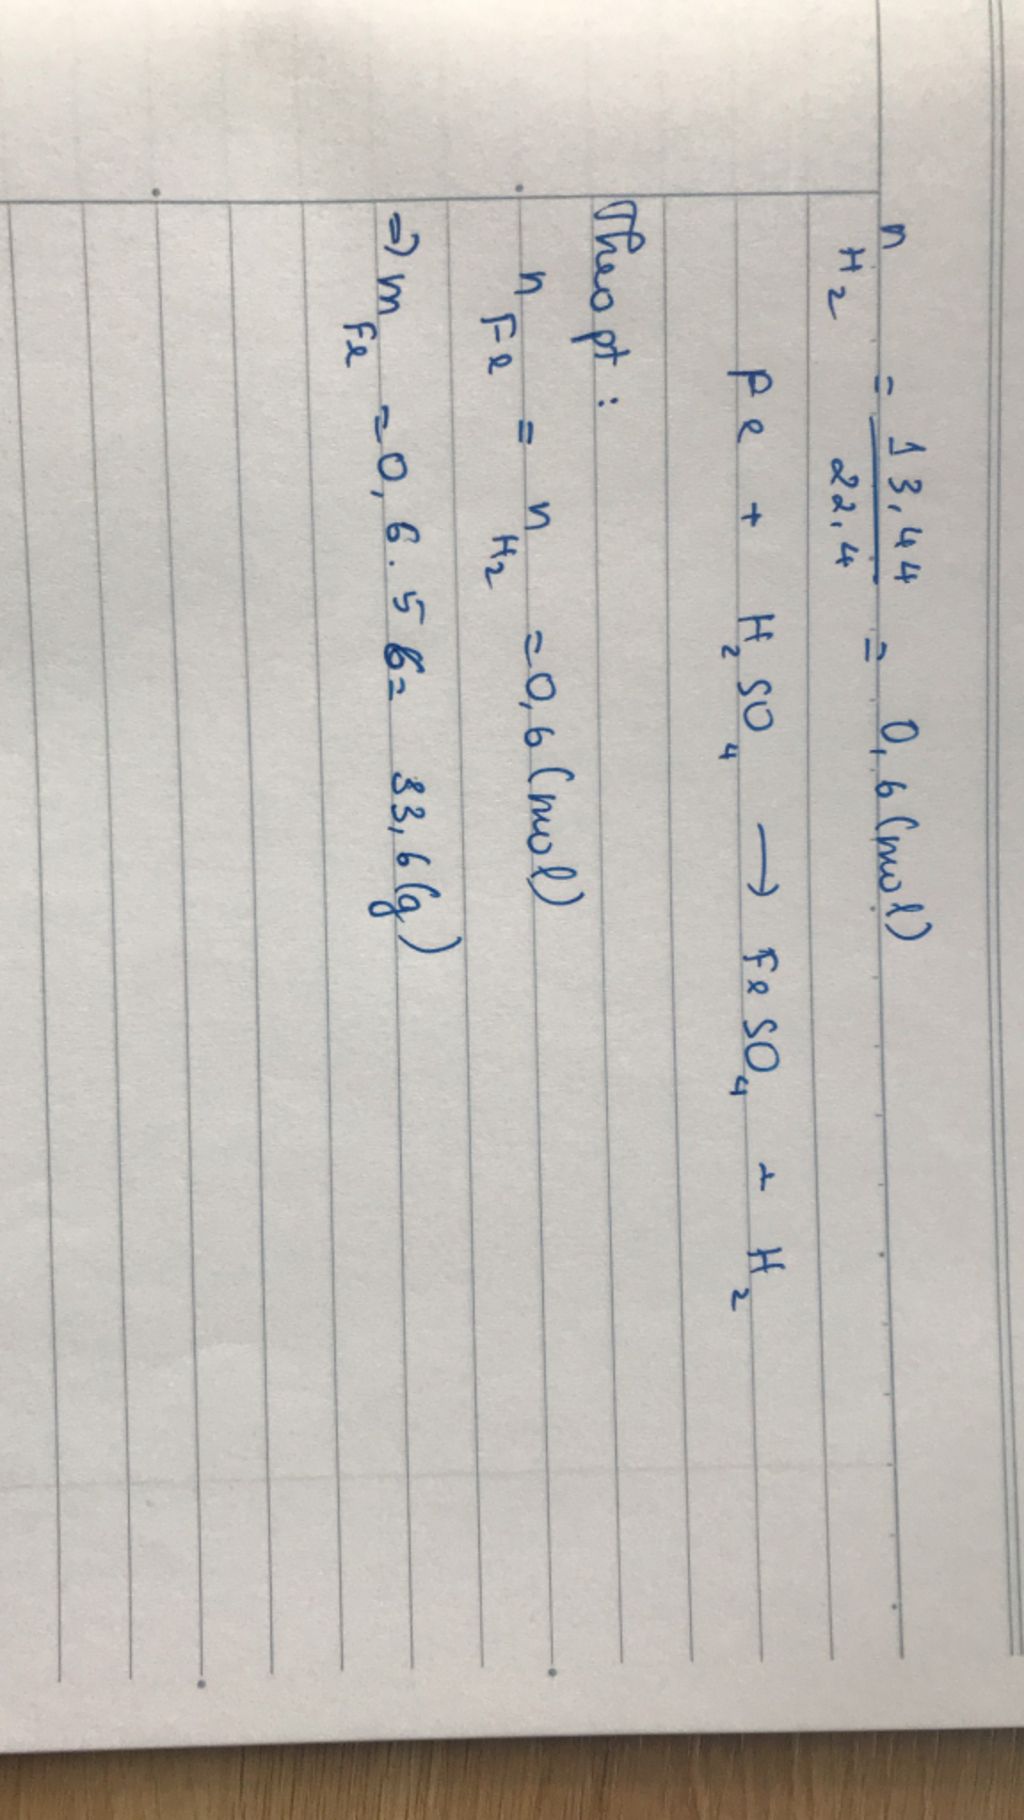 n H2 = 13,44 / 22,4 = 0,6 (mol)
Fe + H2SO4 → FeSO4 + H2
Theo pt :
n Fe = n H2 = 0,6 (mol)
=> m Fe = 0,6 . 56 = 33,6 (g)